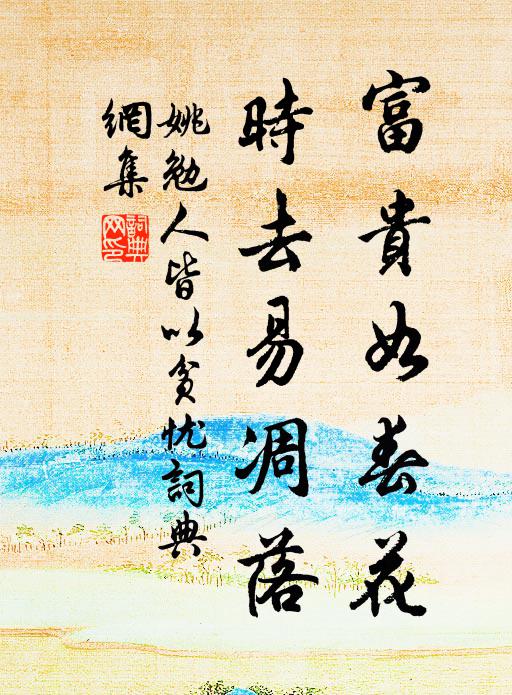 富貴如春花
時去易凋落
姚勉人皆以貧忧詞典
網集
詞典
网印